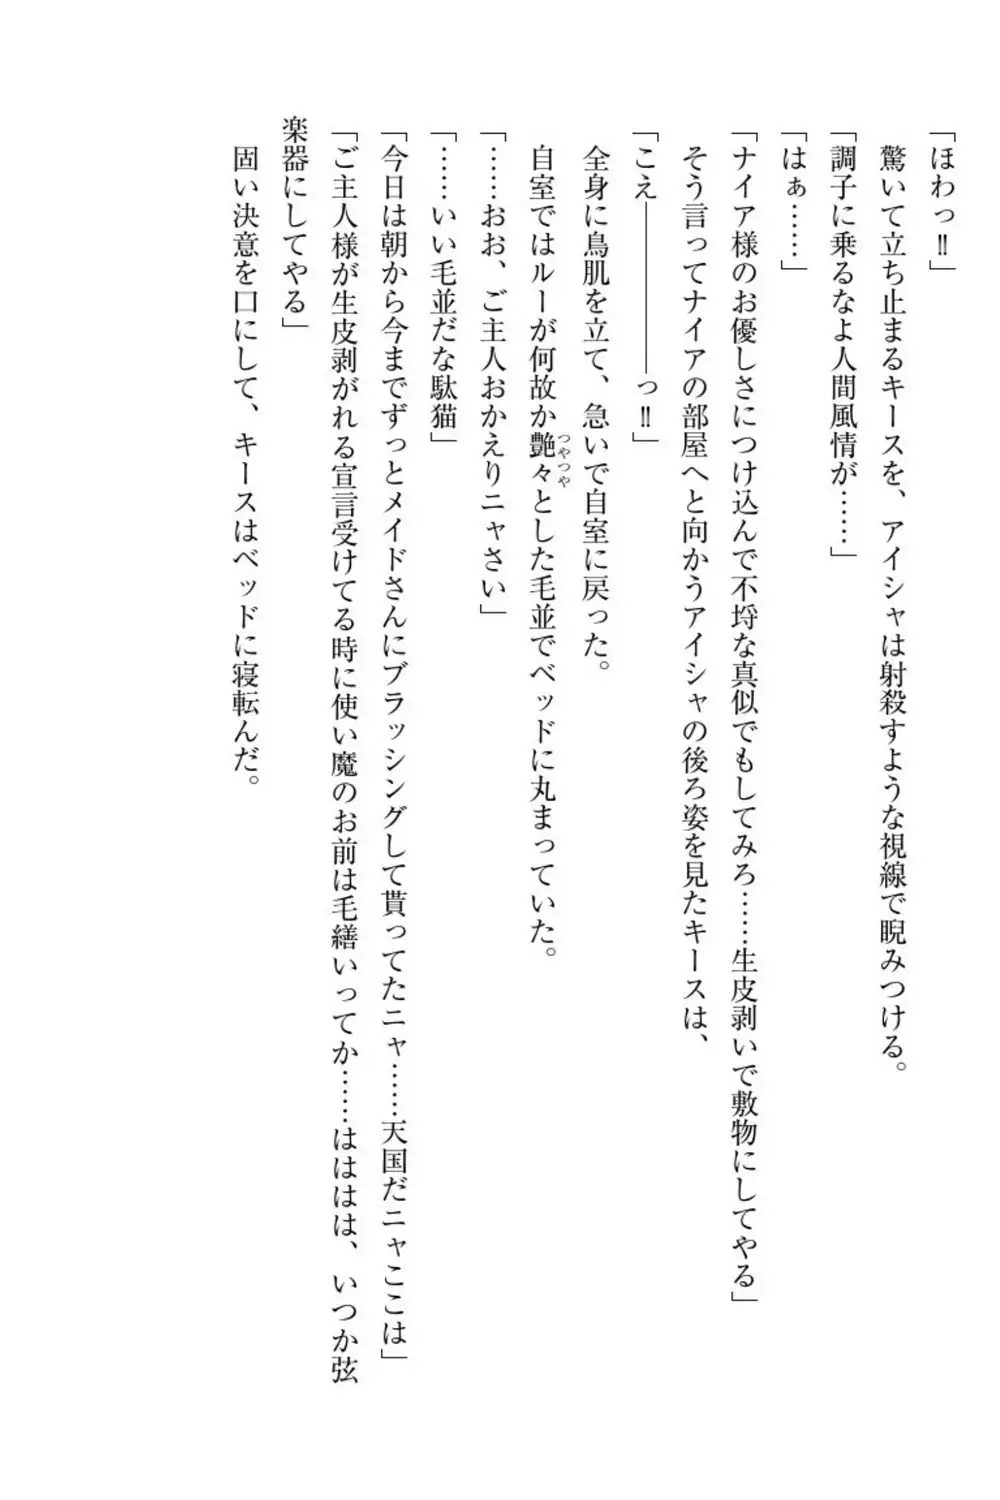 「ほわっ‼」
驚いて立ち止まるキースを、アイシャは射殺すような視線で睨みつける。
「調子に乗るなよ人間風情が……」
「はぁ……」
「ナイア様のお優しさにつけ込んで不埒な真似でもしてみろ……生皮剥いで敷物にしてやる」
そう言ってナイアの部屋へと向かうアイシャの後ろ姿を見たキースは、
「こえ――――――っ‼」
全身に鳥肌を立て、急いで自室に戻った。
自室ではルーが何故か艶々とした毛並でベッドに丸まっていた。
つやつや
「……おお、ご主人おかえりニャさい」
「……いい毛並だな駄猫」
「今日は朝から今までずっとメイドさんにブラッシングして貰ってたニャ……天国だニャここは」
「ご主人様が生皮剥がれる宣言受けてる時に使い魔のお前は毛繕いってか……ははは、いつか弦
楽器にしてやる」
固い決意を口にして、キースはベッドに寝転んだ。